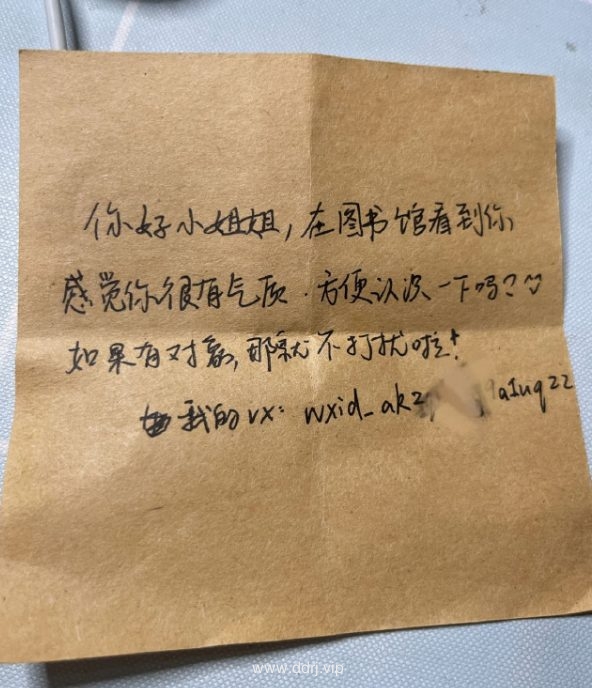 你好小姐姐,在图书馆看到你
感觉你很有气质.方便认识一下吗?
如果有对象,那就不打扰啦!
我的vx: wxid_akz 9aIuq22
www.ddrj.vip